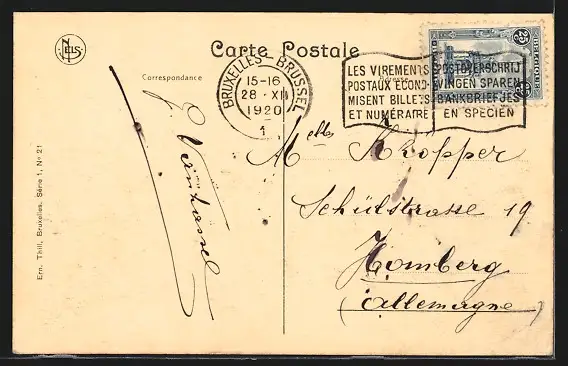 NELS
Carte Postale
Correspondance
Adresse
BRUXELLES - BRUSSEL
15-16
28 · XII
1920
1
LES VIREMENTS
POSTAUX ÉCONO-
MISENT BILLETS
ET NUMÉRAIRE
POSTOVERSCHRIJ-
VINGEN SPAREN
BANKBRIEFJES
EN SPECIËN
25 25
Melles Kröpper
Schülstrasse 19
Homberg
(Allemagne)
Ern. Thill, Bruxelles, Série 1, No 21